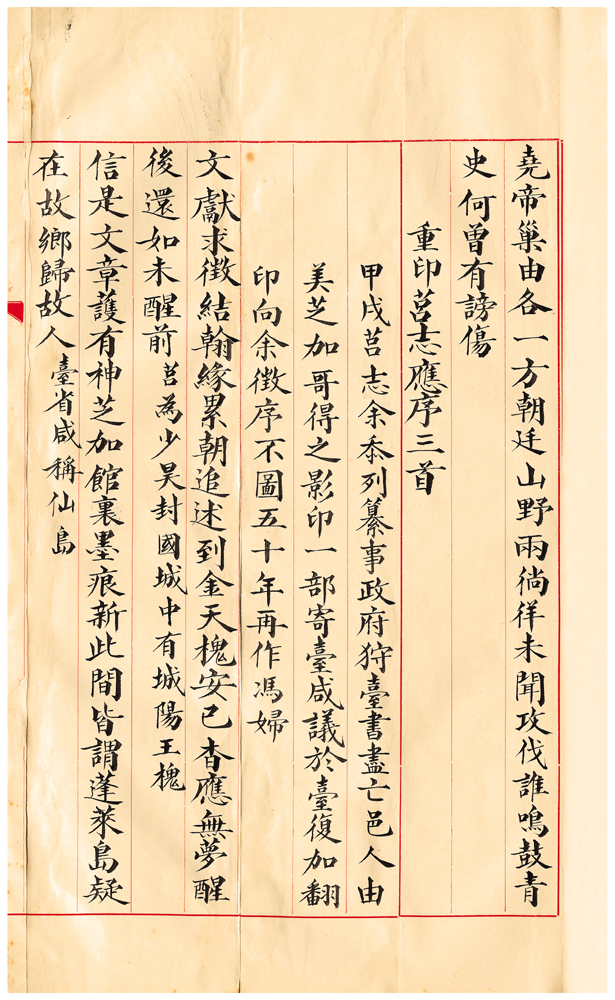 堯帝巢由各一方朝廷山野兩徜徉未聞攻伐誰鳴鼓青
史何曾有謗傷
重印莒志應序三首
甲戌莒志余忝列纂事政府狩臺書盡亡邑人由
美芝加哥得之影印一部寄臺咸議於臺復加翻
印向余徵序不圖五十年再作馮婦
文獻求徵結翰緣累朝追述到金天槐安已杳應無夢醒
後還如未醒前莒為少昊封國城中有城陽王槐
信是文章護有神芝加館裏墨痕新此間皆謂蓬萊島疑
在故鄉歸故人臺省咸稱仙島